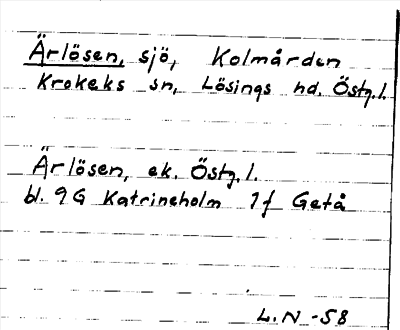 Ärlösen, sjö, Kolmården
Krokeks sn, Lösings hd. Östg. l.
Ärlösen, ek. Östg. l.
bl. 9G Katrineholm 1f Getå
L.N -58